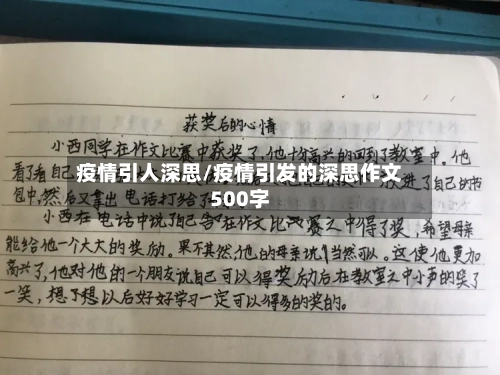 获奖后的心情
小西同学在作文比赛中获奖了,他十分高兴的回到了教室中。他
看了看自己
疫情引人深思/疫情引发的深思作文
放进了自己的书
500字
包中,然后又拿出电话打给了
小西在电话中说了自己在作文比赛之中得了奖,希望母亲
能给他一个大大的奖励。果不其然,他的母亲说当然可以。这使他更加
高兴了,他对他的一个朋友说自己可以得奖励后在教室之中小声的笑了
一笑,想了想以后好好学习一定可以得多的奖的。